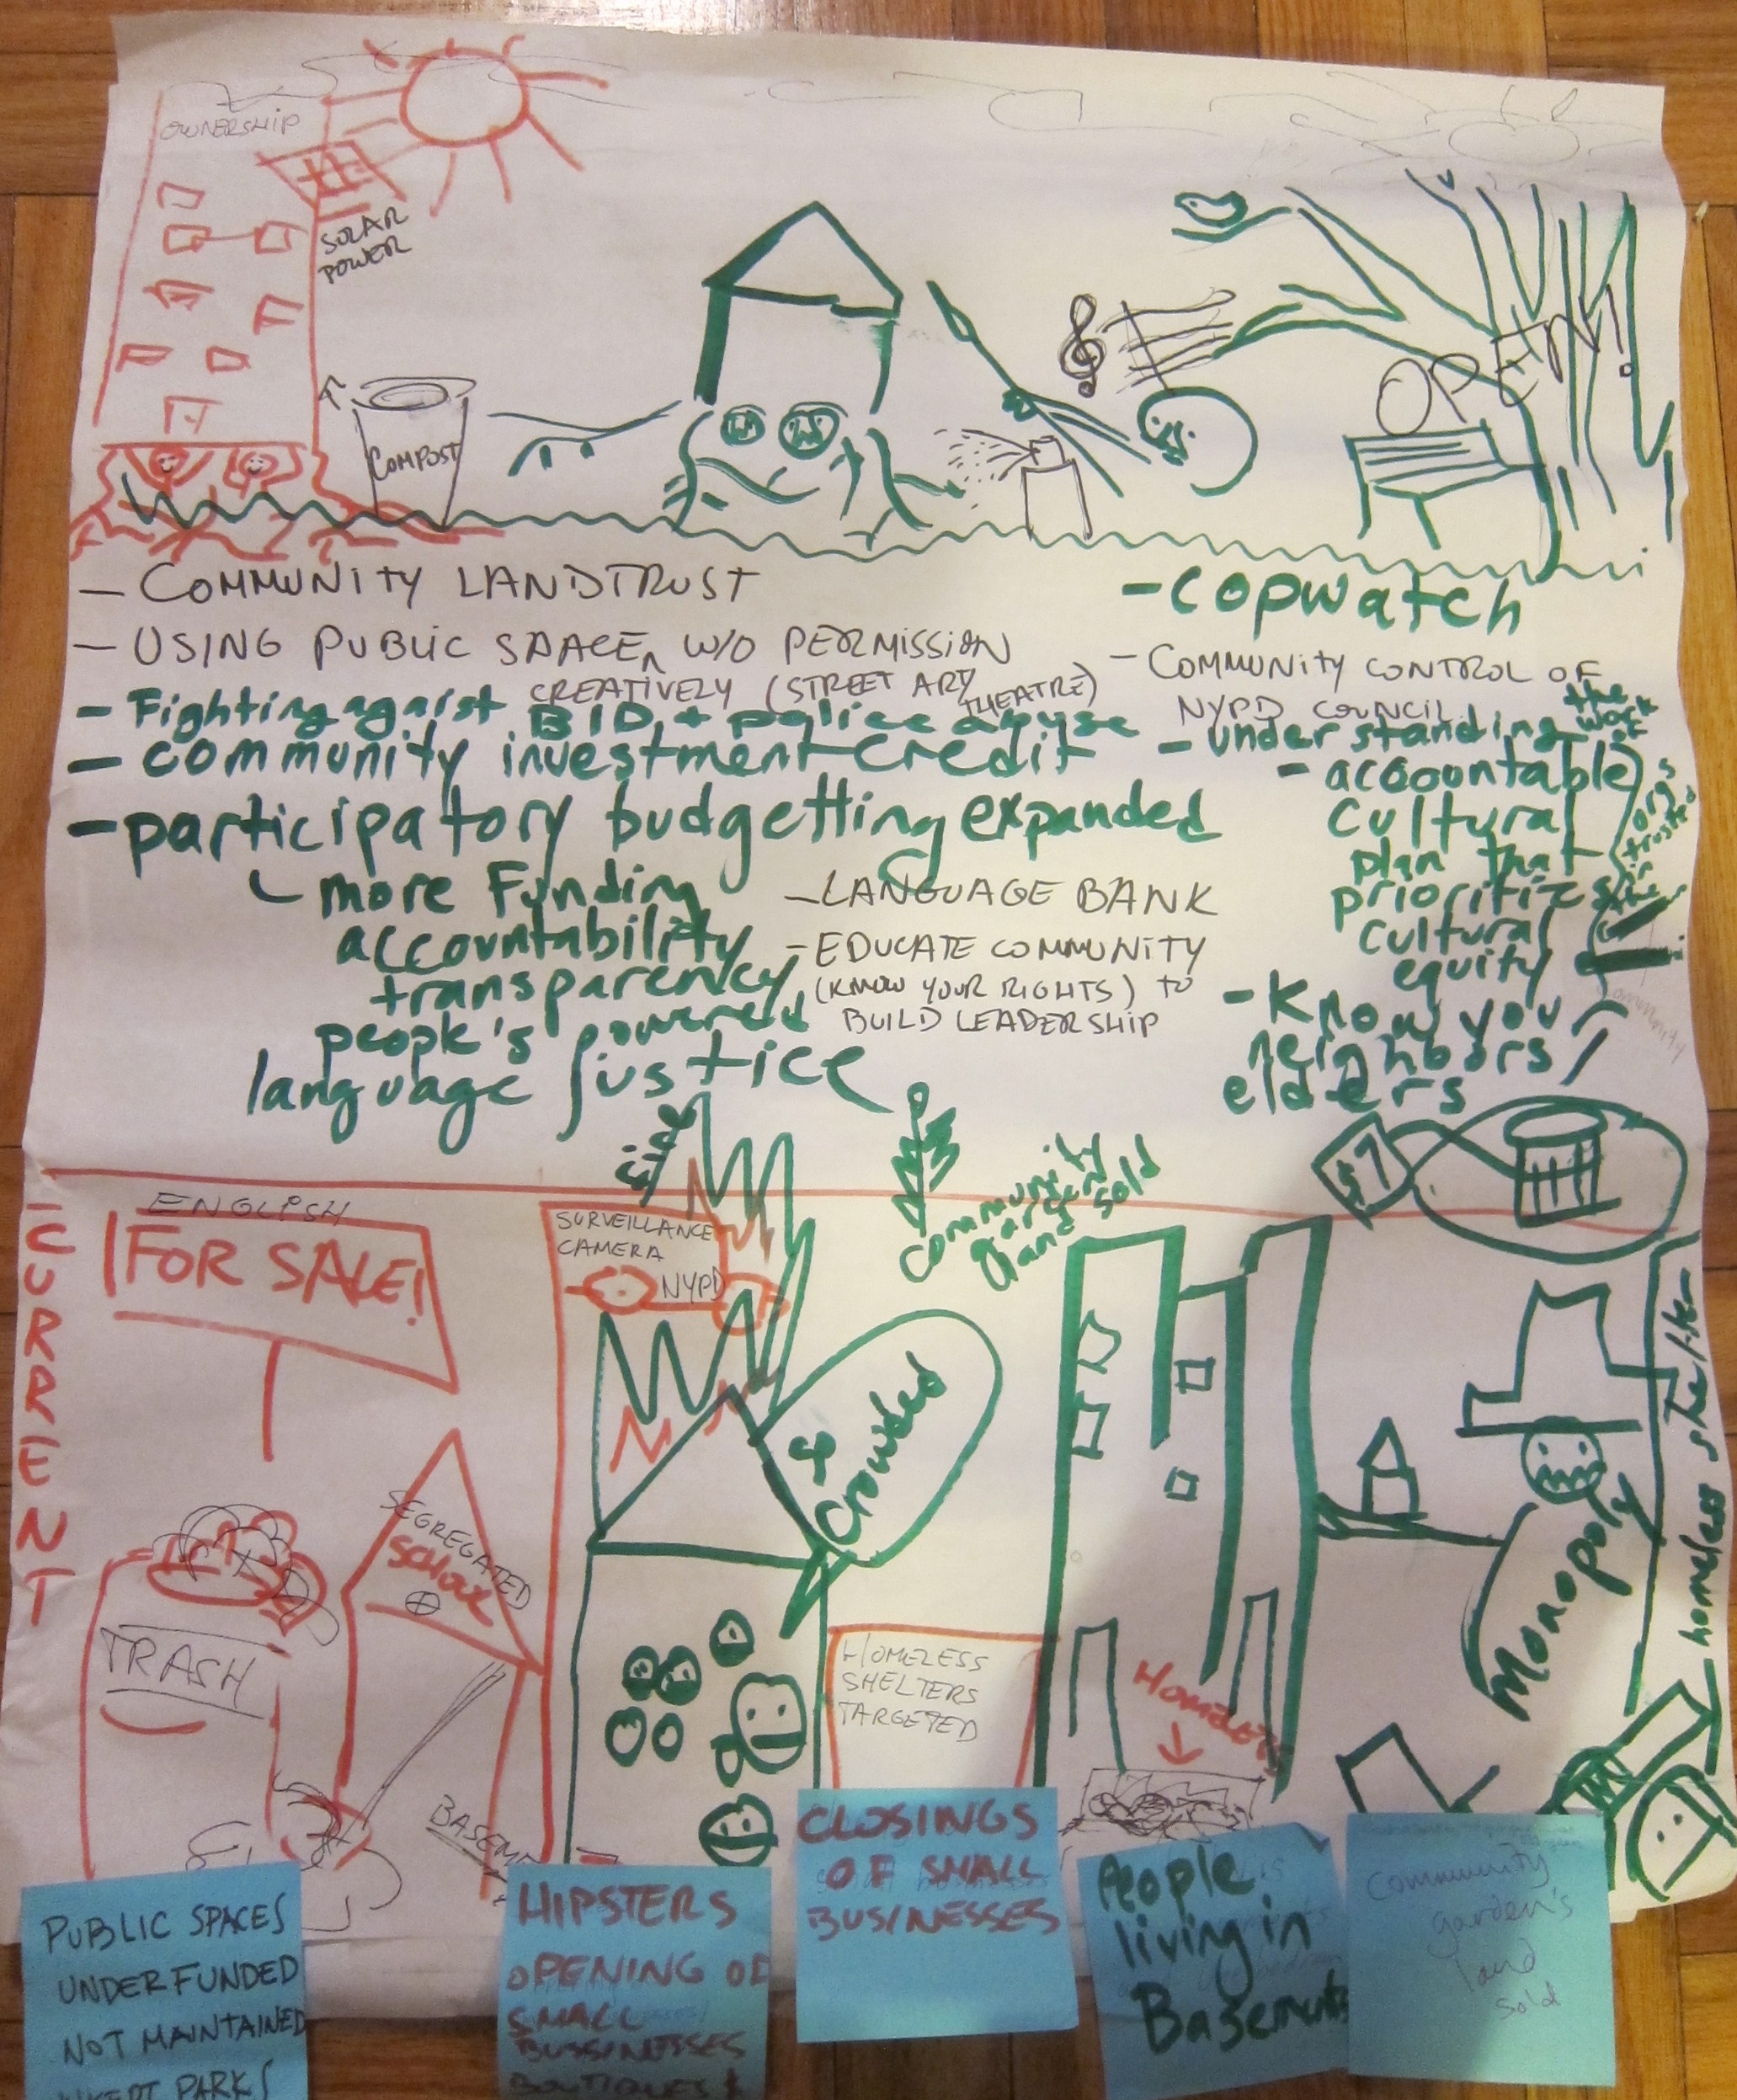 OWNERSHIP
SOLAR
POWER
COMPOST
OPEN!
- COMMUNITY LANDTRUST
- USING PUBLIC SPACE W/O PERMISSION
CREATIVELY (STREET ART
THEATRE)
- Fighting against BID + police abuse
- community investment credit
- participatory budgetting expanded
more Funding
accountability
transparency
people's powered
language justice
- LANGUAGE BANK
- EDUCATE COMMUNITY
(KNOW YOUR RIGHTS) TO
BUILD LEADERSHIP
- copwatch
- COMMUNITY CONTROL OF
NYPD COUNCIL
- understanding the
work
of
orgs
trusted
in
the
community
- accountable
cultural
plan that
prioritizes
cultural
equity
- Know you
neighbors /
elders
CURRENT
ENGLISH
FOR SALE!
TRASH
SEGREGATED
BASEM
SURVEILLANCE
CAMERA
NYPD
fire
community
garden
land sold
So
Crowded
HOMELESS
SHELTERS
TARGETED
$7
HOMELESS
Monopoly
homeless shelter
PUBLIC SPACES
UNDERFUNDED
NOT MAINTAINED
PARKS
HIPSTERS
OPENING OF
SMALL
BUSSINESSES
BOUTIQUES &
CLOSINGS
OF SMALL
BUSINESSES
People
living in
Basements
Community
garden's
land
sold